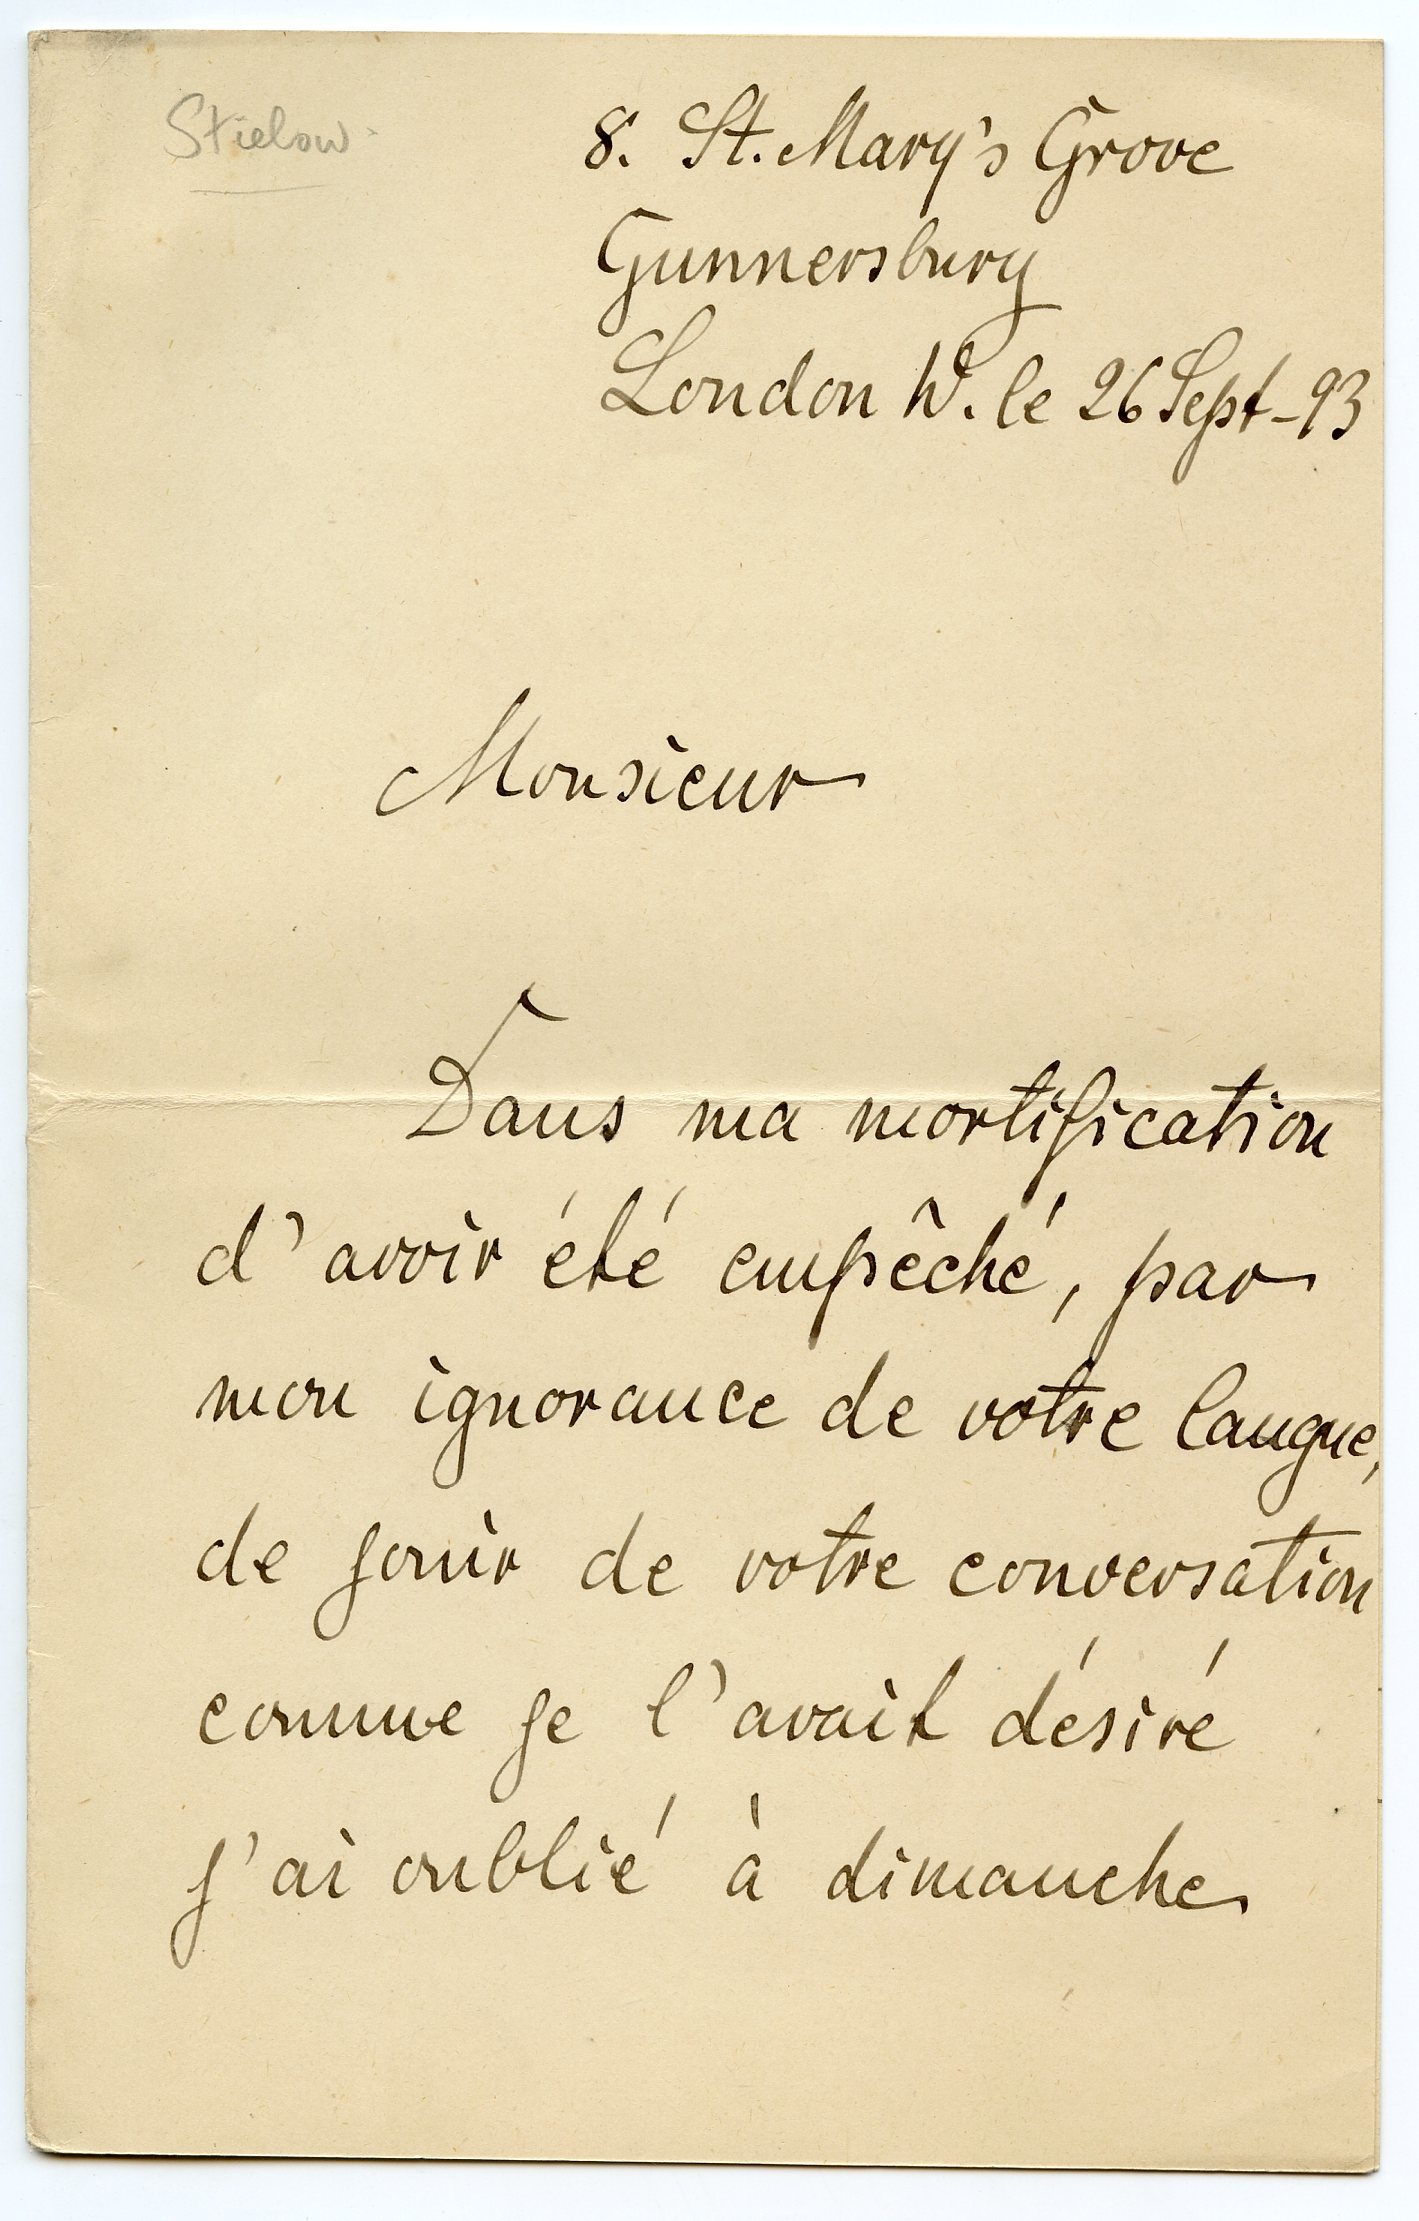 Stielow
8. St. Mary's Grove
Gunnersbury
London W. le 26 Sept - 93
Monsieur
Dans ma mortification
d'avoir été empêché, par
mon ignorance de votre langue,
de jouir de votre conversation
comme je l'avait désiré
j'ai oublié à dimanche